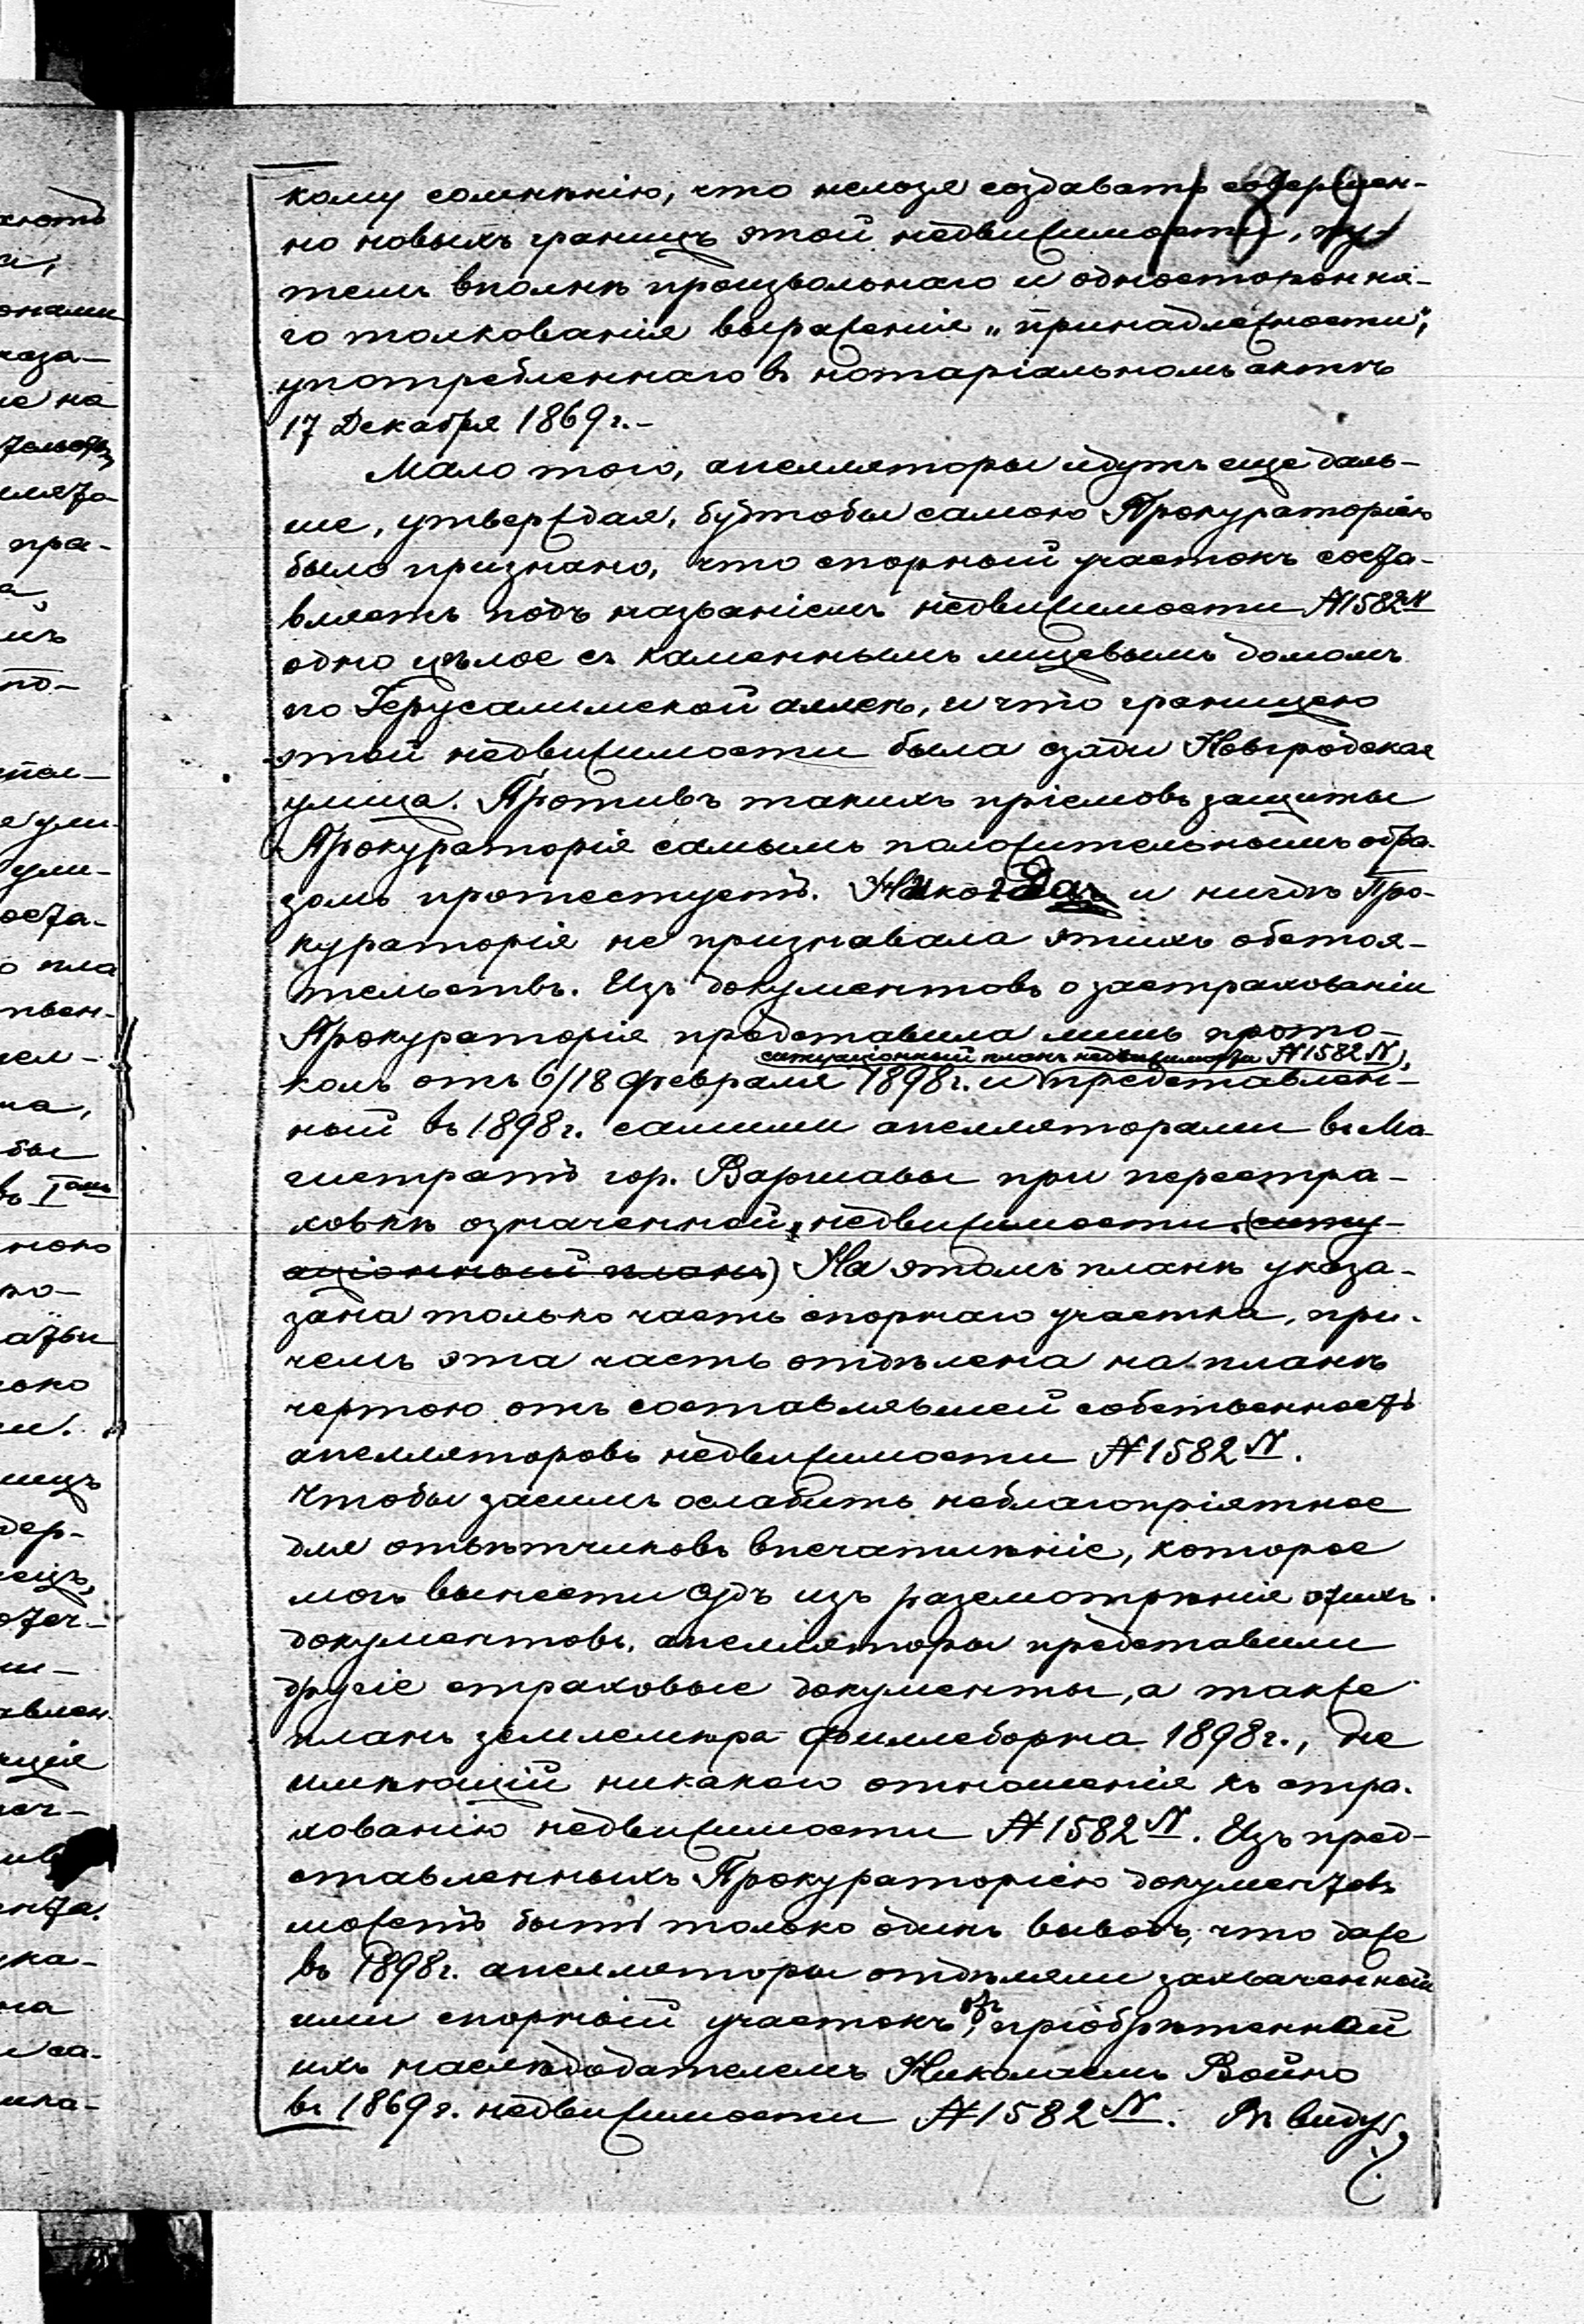 кому сомнѣнію, что нельзя создавать совершен-
но новыхъ границъ этой недвижимости, пу-
темъ вполнѣ произвольнаго и одностороння-
го толкованія выраженія „принадлежности",
употребленнаго въ нотаріальномъ актѣ
17 Декабря 1869 г.-
Мало того, апелляторы идутъ еще даль-
ше, утверждая, будтобы самою Прокураторіею
было признано, что спорный участокъ соста-
вляетъ подъ названіемъ недвижимости №1582N
одно цѣлое съ каменнымъ лицевымъ домомъ
по Іерусалимской аллеѣ, и что границею
этой недвижимости была сзади Новгродская
улица. Противъ такихъ пріемовъ защиты
Прокураторія самымъ положительнымъ обра-
зомъ протестуетъ. Никогда и нигдѣ Про-
кураторія не признавала этихъ обстоя-
тельствъ. Изъ документовъ о застрахованіи
Прокураторія представила лишь прото-
ситуаціонный планъ недвижимости №1582 N,
колъ отъ 6/18 февраля 1898 г. и представлен-
ный въ 1898 г. самими апелляторами въ Ма-
гистратъ гор. Варшавы при перестра-
ховкѣ означенной недвижимости. (ситу-
аціонный планъ) На этомъ планѣ указа-
зана только часть спорнаго участка, при-
чемъ эта часть отдѣлена на планѣ
чертою отъ составлявшей собственность
апелляторовъ недвижимости №1582 N.
Чтобы засимъ ослабить неблагопріятное
для отвѣтчиковъ впечатлѣніе, которое
могъ вынести Судъ изъ разсмотрѣнія этихъ
документовъ, апелляторы представили
другіе страховые документы, а также
планъ землемѣра Филлеборна 1898 г., не
имѣющій никакого отношенія къ стра-
хованію недвижимости №1582 N. Изъ пред-
ставленныхъ Прокураторіею документовъ
можетъ быть только одинъ выводъ, что даже
въ 1898 г. апелляторы отдѣляли захваченный
ими спорный участокъ отъ пріобрѣтенной
ихъ наслѣдодателемъ Николаемъ Война
въ 1869 г. недвижимости №1582 N. Въ виду